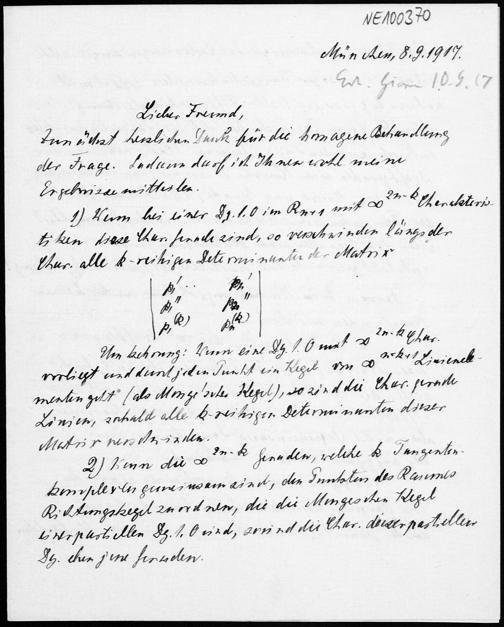 NE100370
München, 8.9.1917.
10.9.17
Lieber Freund,
Zunächst herzlichen Dank für die homogene Behandlung
der Frage. Sodann darf ich Ihnen wohl meine
Ergebnisse mitteilen.
1) Wenn bei einer Dg. 1. O im Rn+1 mit ∞^2n-k Charakteris-
tiken diese Char. Gerade sind, so verschwinden längs der
Char. alle k-reihigen Determinanten der Matrix
| p1' ... pn' |
| p1'' pn'' |
| p1^(k) pn^(k) |
Umkehrung: Wenn eine Dg. 1. O mit ∞^2n-k Char.
vorliegt und durch jeden Punkt ein Kegel von ∞^n-k+1 Linienele-
menten geht (als Monge'scher Kegel), so sind die Char. gerade
Linien, sobald alle k-reihigen Determinanten dieser
Matrix verschwinden.
2) Wenn die ∞^2n-k Geraden, welche k Tangenten-
komplexen gemeinsam sind, den Punkten des Raumes
Richtungskegel zuordnen, die die Mongeschen Kegel
einer partiellen Dg. 1. O sind, so sind die Char. dieser partiellen
Dg. eben jene Geraden.